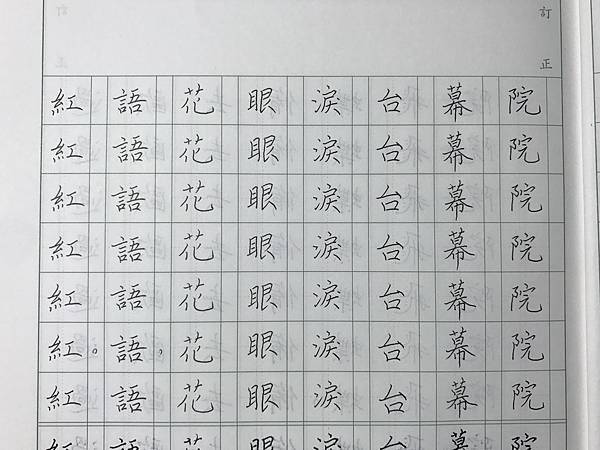 訂正
院院院院院院院院
幕幕幕幕幕幕幕幕
台台台台台台台台
淚淚淚淚淚淚淚淚
眼眼眼眼眼眼眼眼
花花花花花花花花
語語語語語語，語語
紅紅紅紅紅紅。紅紅